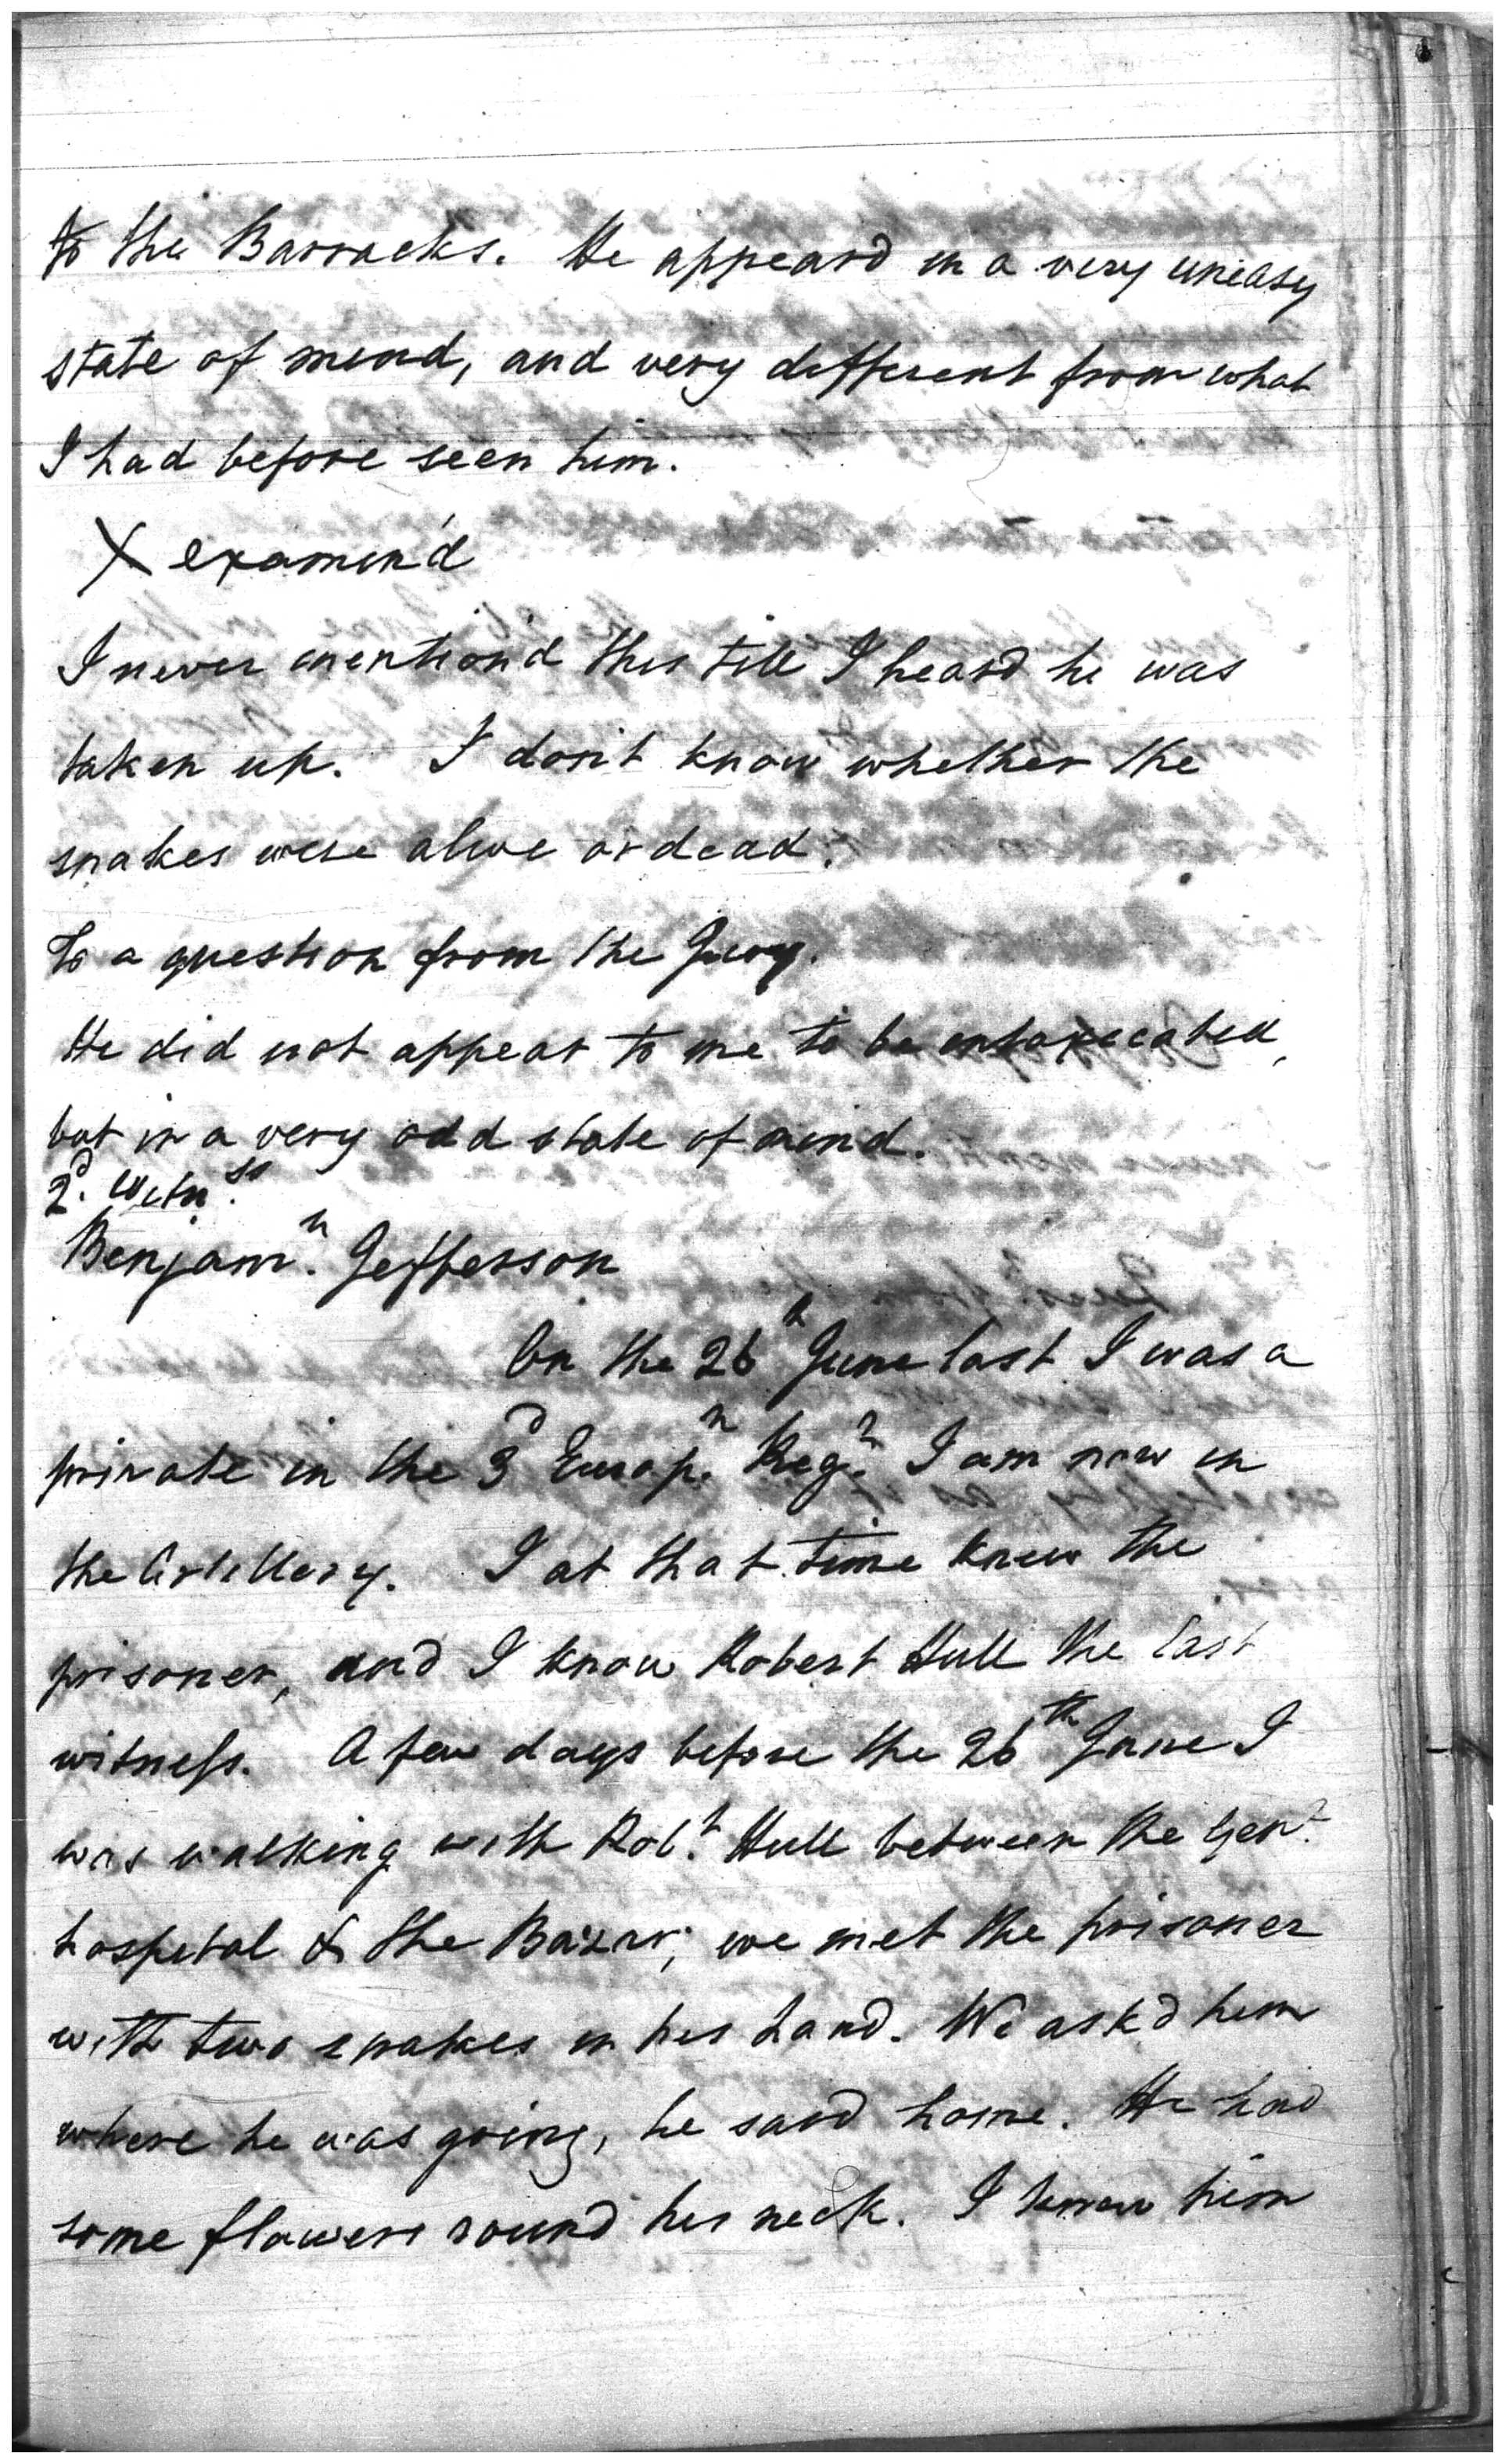 to the Barracks. He appeard in a very uneasy
state of mind, and very different from what
I had before seen him.
X examin'd
I never mention'd this till I heard he was
taken up. I don't know whether the
snakes were alive or dead.
To a question from the Jury.
He did not appear to me to be intoxicated,
but in a very odd state of mind.
2d. Witnss.
Benjamn. Jefferson
On the 26h June last I was a
private in the 3d Europn. Regt. I am now in
the Artillery. I at that time knew the
prisoner, and I know Robert Hull the last
witness. A few days before the 26th June I
was walking with Robt. Hull between the Genl.
hospital & the Bazar; we met the prisoner
with two snakes in his hand. We ask'd him
where he was going, he said home. He had
some flowers round his neck. I knew him